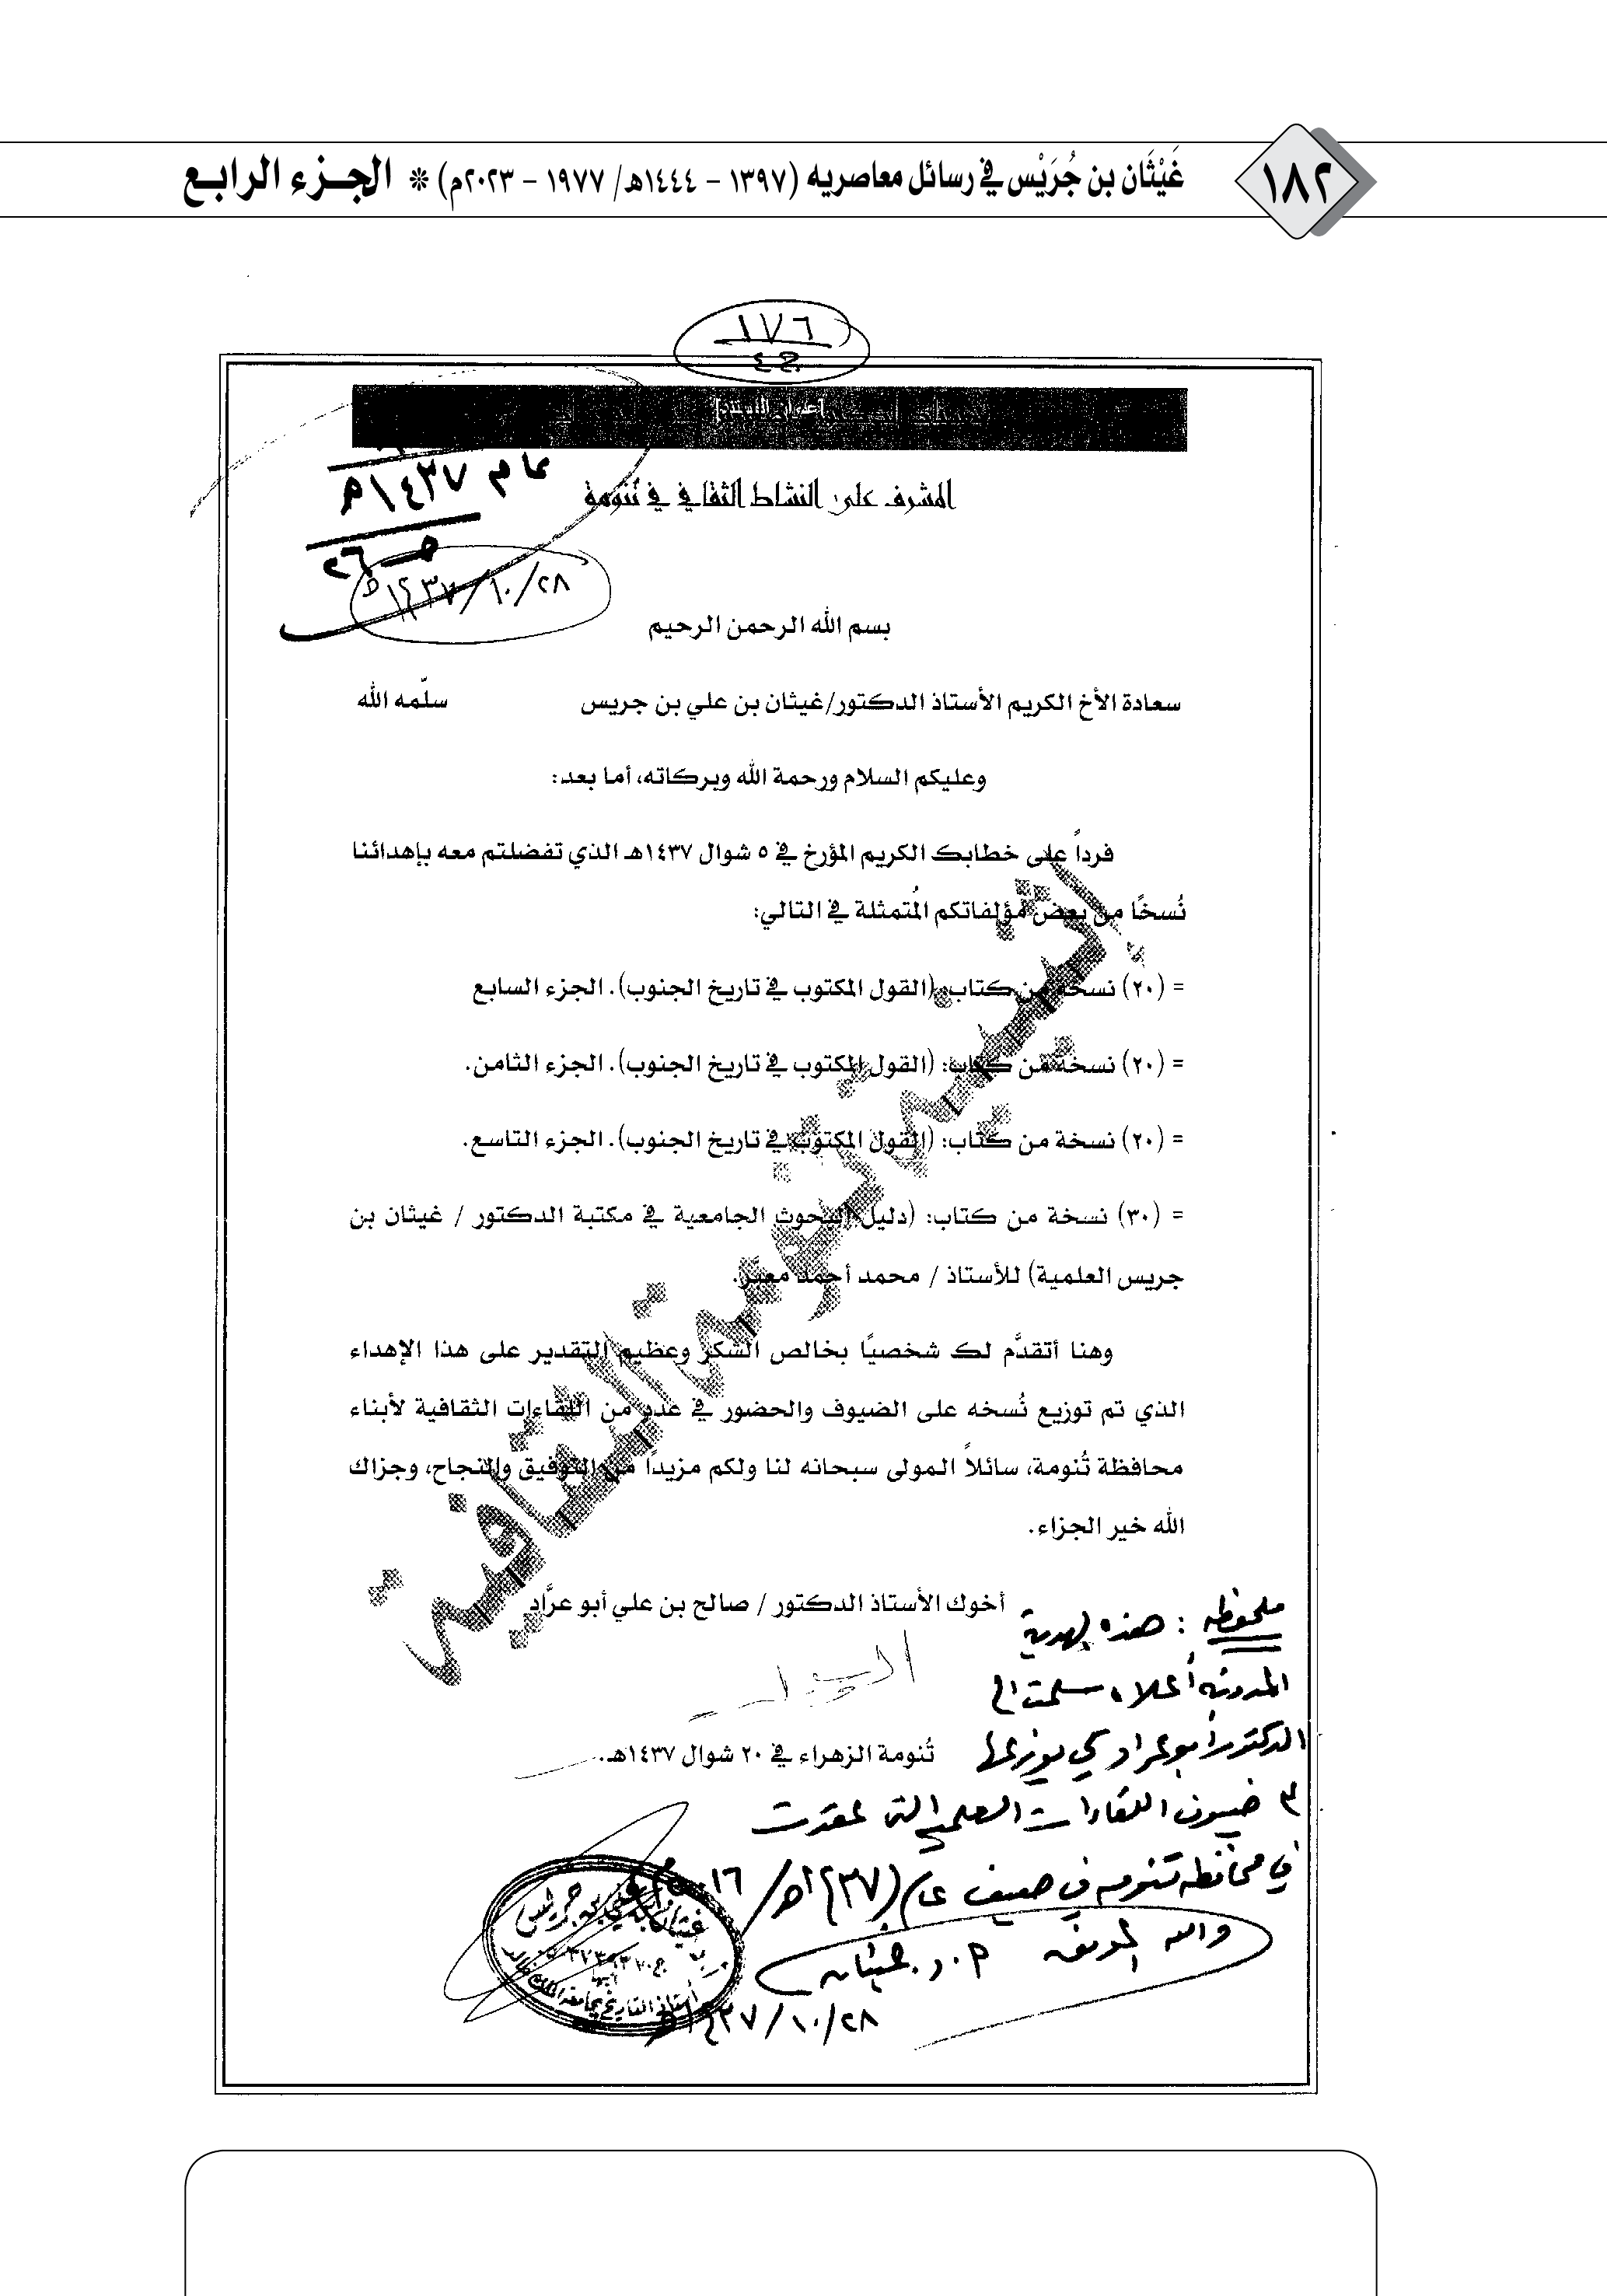 ١٨٢
غَيْثَان بن جُرَيْس في رسائل معاصريه (١٣٩٧ – ١٤٤٤هـ/ ١٩٧٧ – ٢٠٢٣م) * الجزء الرابع
١٧٦
ج٤
[عنوان المستند]
عام ١٤٣٧هـ
ص٢٦
٢٨/١٠/١٤٣٧هـ
المشرف على النشاط الثقافي في تنومة
بسم الله الرحمن الرحيم
سعادة الأخ الكريم الأستاذ الدكتور/غيثان بن علي بن جريس سلّمه الله
وعليكم السلام ورحمة الله وبركاته، أما بعد:
فرداً على خطابك الكريم المؤرخ في ٥ شوال ١٤٣٧هـ الذي تفضلتم معه بإهدائنا
نُسخًا من بعض مؤلفاتكم المُتمثلة في التالي:
= (٢٠) نسخة من كتاب: (القول المكتوب في تاريخ الجنوب). الجزء السابع
= (٢٠) نسخة من كتاب: (القول المكتوب في تاريخ الجنوب). الجزء الثامن.
= (٢٠) نسخة من كتاب: (القول المكتوب في تاريخ الجنوب). الجزء التاسع.
= (٣٠) نسخة من كتاب: (دليل البحوث الجامعية في مكتبة الدكتور / غيثان بن
جريس العلمية) للأستاذ / محمد أحمد معبّر.
وهنا أتقدَّم لك شخصيًا بخالص الشكر وعظيم التقدير على هذا الإهداء
الذي تم توزيع نُسخه على الضيوف والحضور في عدد من اللقاءات الثقافية لأبناء
محافظة تُنومة، سائلاً المولى سبحانه لنا ولكم مزيداً من التوفيق والنجاح، وجزاك
الله خير الجزاء.
أخوك الأستاذ الدكتور / صالح بن علي أبو عرَّاد
ملحوظة : هذه الهدية
المدونة أعلاه سلمت إلى
الدكتور أبو عراد كي يوزعها
تُنومة الزهراء في ٢٠ شوال ١٤٣٧هـ.
ضيوف اللقاءات العلمية التي عقدت
في محافظة تنومة في صيف عام (١٤٣٧هـ/٢٠١٦م)
والله الموفق م.د. غيثان
٢٨/١٠/١٤٣٧هـ
غيثان بن علي بن جريس
أبها
أستاذ التاريخ بجامعة الملك خالد